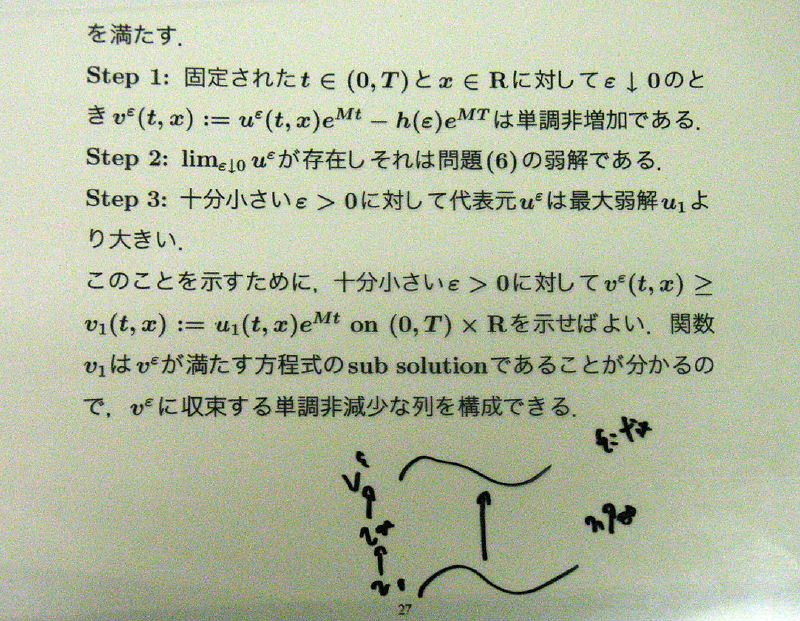 を満たす.
Step 1: 固定された t ∈ (0, T) と x ∈ R に対して ε ↓ 0 のと
き v^ε(t, x) := u^ε(t, x)e^{Mt} − h(ε)e^{MT} は単調非増加である.
Step 2: lim_{ε↓0} u^ε が存在しそれは問題 (6) の弱解である.
Step 3: 十分小さい ε > 0 に対して代表元 u^ε は最大弱解 u_1 よ
り大きい.
このことを示すために, 十分小さい ε > 0 に対して v^ε(t, x) ≥
v_1(t, x) := u_1(t, x)e^{Mt} on (0, T) × R を示せばよい. 関数
v_1 は v^ε が満たす方程式の sub solution であることが分かるの
で, v^ε に収束する単調非減少な列を構成できる.
V^ε
n↑∞
27